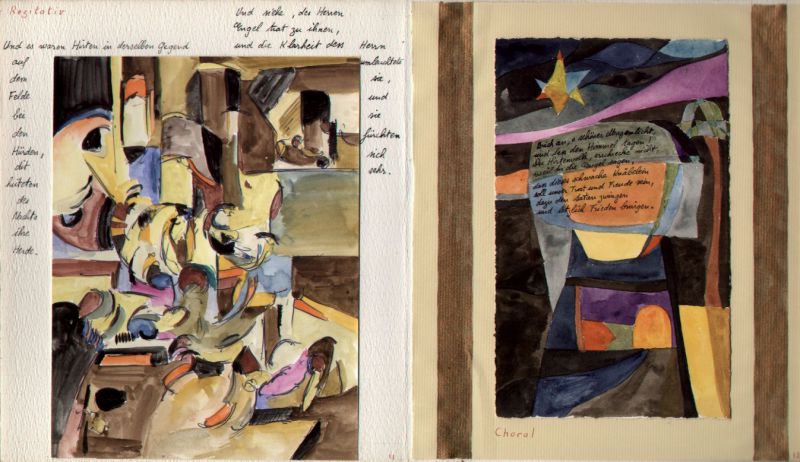 Rezitativ
Und es waren Hirten in derselben Gegend
auf
dem
Felde
bei
den
Hürden,
die
hüteten
des
Nachts
ihre
Herde.
Und siehe, des Herren
Engel trat zu ihnen,
und die Klarheit des Herrn
umleuchtete
sie,
und
sie
fürchten
sich
sehr.
Brich an, o schönes Morgenlicht,
und lass den Himmel tagen!
Du Hirtenvolk, erschrecke nicht,
weil dir die Engel sagen,
dass dieses schwache Knäbelein
soll unser Trost und Freude sein,
dazu den Satan zwingen
und letztlich Frieden bringen.
Choral